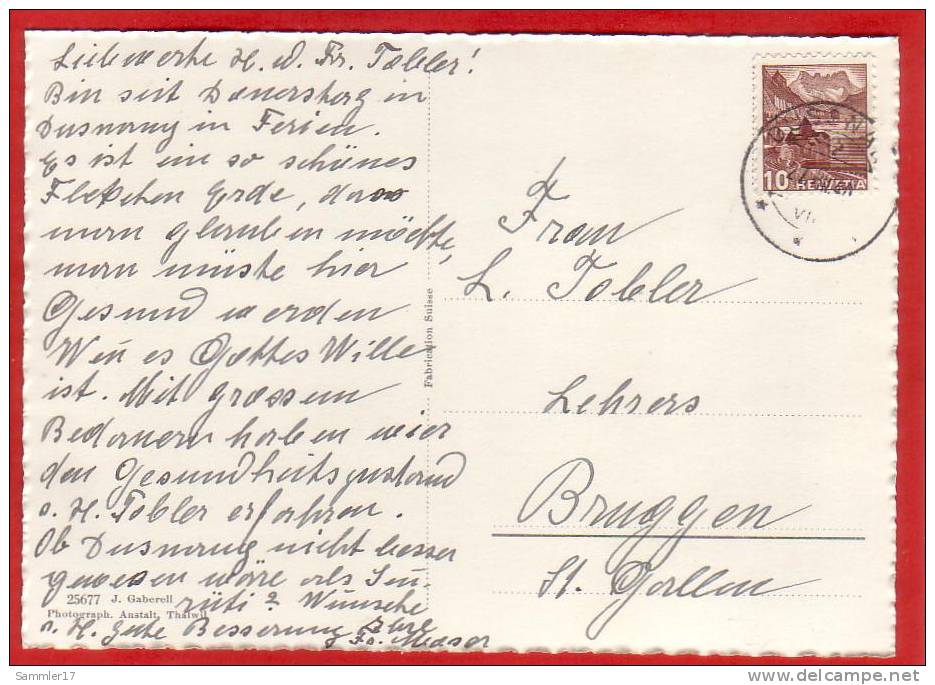 Liebwerte H. u. Fr. Tobler!
Bin seit Donerstag in
Dussnang in Ferien.
Es ist ein so schönes
Fleckchen Erde, dass
man glauben möchte,
man müste hier
Gesund werden
Wen es Gottes Wille
ist. Mit grossem
Bedauern haben wier
den Gesundheitszustand
v. H. Tobler erfahren.
Ob Dusnang nicht besser
gewesen wäre als Sen-
rüti? Wünsche
n. H. gute Besserung Ihre
Fr. Moser
25677 J. Gaberell
Photograph. Anstalt, Thalwil
Fabrication Suisse
10 HELVETIA
Frau
L. Tobler
Lehrers
Bruggen
St. Gallen
Sammler17
delcampe.net